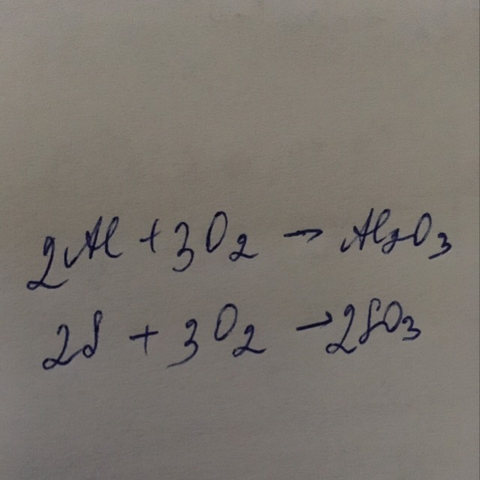 2Al + 3O₂ → Al₂O₃
2S + 3O₂ → 2SO₃